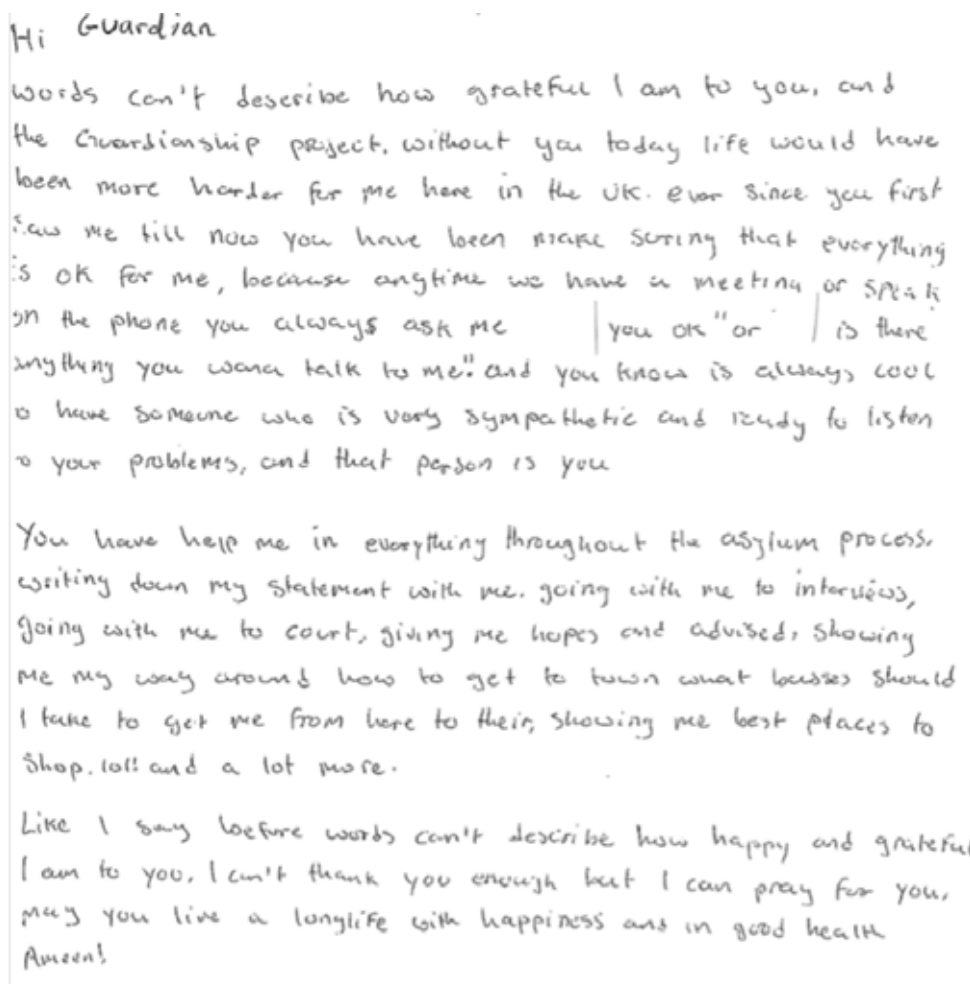 Hi Guardian
words can't describe how grateful I am to you, and
the Guardianship project, without you today life would have
been more harder for me here in the UK. ever since you first
saw me till now you have been make suring that everything
is ok for me, because anytime we have a meeting or speak
on the phone you always ask me you ok" or is there
anything you wana talk to me." and you know is always cool
to have someone who is very sympathetic and ready to listen
to your problems, and that person is you
You have help me in everything throughout the asylum process.
writing down my statement with me. going with me to interviews,
going with me to court, giving me hopes and advised, showing
me my way around how to get to town what busses should
I take to get me from here to their, showing me best places to
Shop. lol! and a lot more.
Like I say before words can't describe how happy and grateful
I am to you. I can't thank you enough but I can pray for you.
may you live a longlife with happiness and in good health
Ameen!